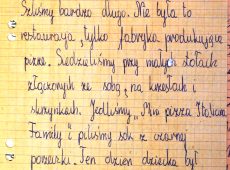 Szliśmy bardzo długo. Nie była to
restauracja, tylko fabryka produkująca
pizze. Siedzieliśmy przy małych stołach
złączonych ze sobą, na krzesłach i
skrzynkach. Jedliśmy „Mia pizza Italiana
Family" i piliśmy sok z czarnej
porzeczki. Ten dzień dziecka był